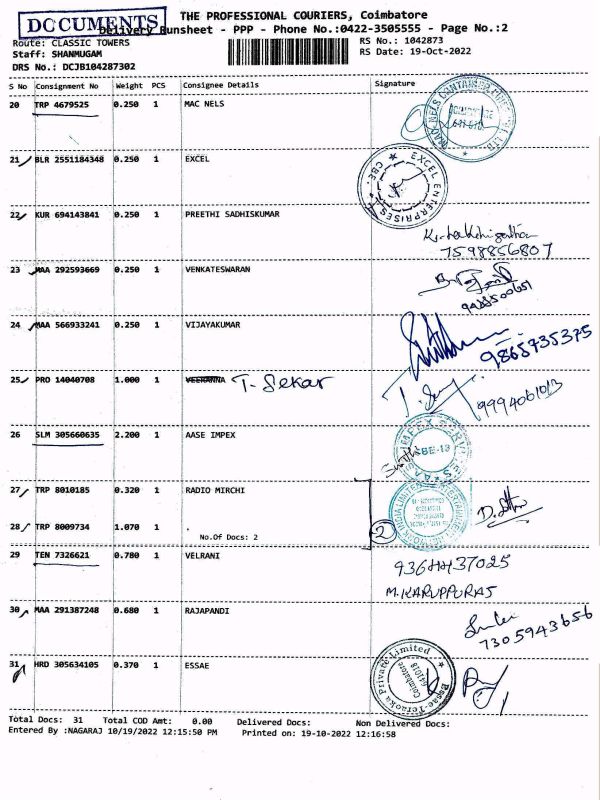 DOCUMENTS
THE PROFESSIONAL COURIERS, Coimbatore
Delivery Runsheet - PPP - Phone No.:0422-3505555 - Page No.:2
Route: CLASSIC TOWERS RS No.: 1042873
Staff: SHANMUGAM RS Date: 19-Oct-2022
DRS No.: DCJB104287302
S No Consignment No Weight PCS Consignee Details Signature
20 TRP 4679525 0.250 1 MAC NELS
21 BLR 2551184348 0.250 1 EXCEL
EXCEL ENTERPRISES CBE
22 KUR 694143841 0.250 1 PREETHI SADHISKUMAR
7598856807
23 MAA 292593669 0.250 1 VENKATESWARAN
24 MAA 566933241 0.250 1 VIJAYAKUMAR
9865735375
25 PRO 14040708 1.000 1 VEERANNA T. Sekar
9994061013
26 SLM 305660635 2.200 1 AASE IMPEX
27 TRP 8010185 0.320 1 RADIO MIRCHI
28 TRP 8009734 1.070 1 .
No.Of Docs: 2
2
29 TEN 7326621 0.780 1 VELRANI
9364437025
M.KARUPPURAJ
30 MAA 291387248 0.680 1 RAJAPANDI
7305943656
31 HRD 305634105 0.370 1 ESSAE
Essae-Teraoka Private Limited
Coimbatore
641018
Total Docs: 31 Total COD Amt: 0.00 Delivered Docs: Non Delivered Docs:
Entered By :NAGARAJ 10/19/2022 12:15:50 PM Printed on: 19-10-2022 12:16:58